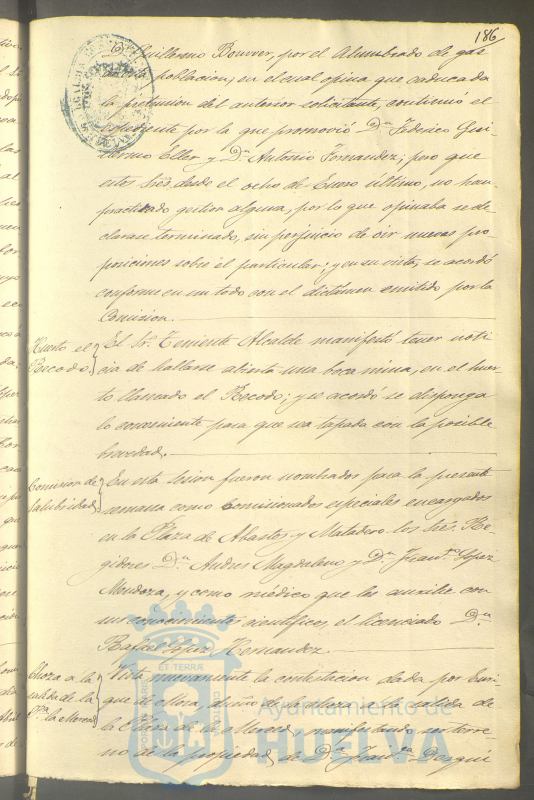 186
Dn Guillermo Bouvver, por el Alumbrado de gas
poblacion; en el cual opina que caducada
la pretension del anterior solicitante, continuó el
espediente por la que promovió Dn Federico Gui-
llermo Eller y Dn Antonio Fernandez; pero que
estos Sres desde el ocho de Enero último, no han
practicado gestion alguna, por lo que opinaba se de-
clarase terminado, sin perjuicio de oir nuevas pro-
posiciones sobre el particular; y en su vista, se acordó
conforme en un todo con el dictámen emitido por la
Comision.
Huerto el
Recodo.
El Sr. Teniente Alcalde manifestó tener noti-
cia de hallarse abierta una boca mina, en el huer-
to llamado el Recodo; y se acordó se disponga
lo conveniente para que sea tapada con la posible
brevedad.
Comision de
salubridad
En esta sesion fueron nombrados para la presente
semana como Comisionados especiales encargados
en la Plaza de Abastos y Matadero los Sres. Re-
gidores Dn Andres Magdaleno y Dn Juan López
Mendoza, y como médico que les auxilie con
sus conocimientos científicos, el licenciado Dn
Rafael López Hernandez.
Choza a la
salida de la
la Merced
Vista nuevamente la contestacion dada por Enri-
que de Mora, dueño de la choza sita a la salida de
la Plaza de la Merced, manifestando ser terre-
no de la propiedad de
ET TERRÆ
Ayuntamiento de
HUELVA